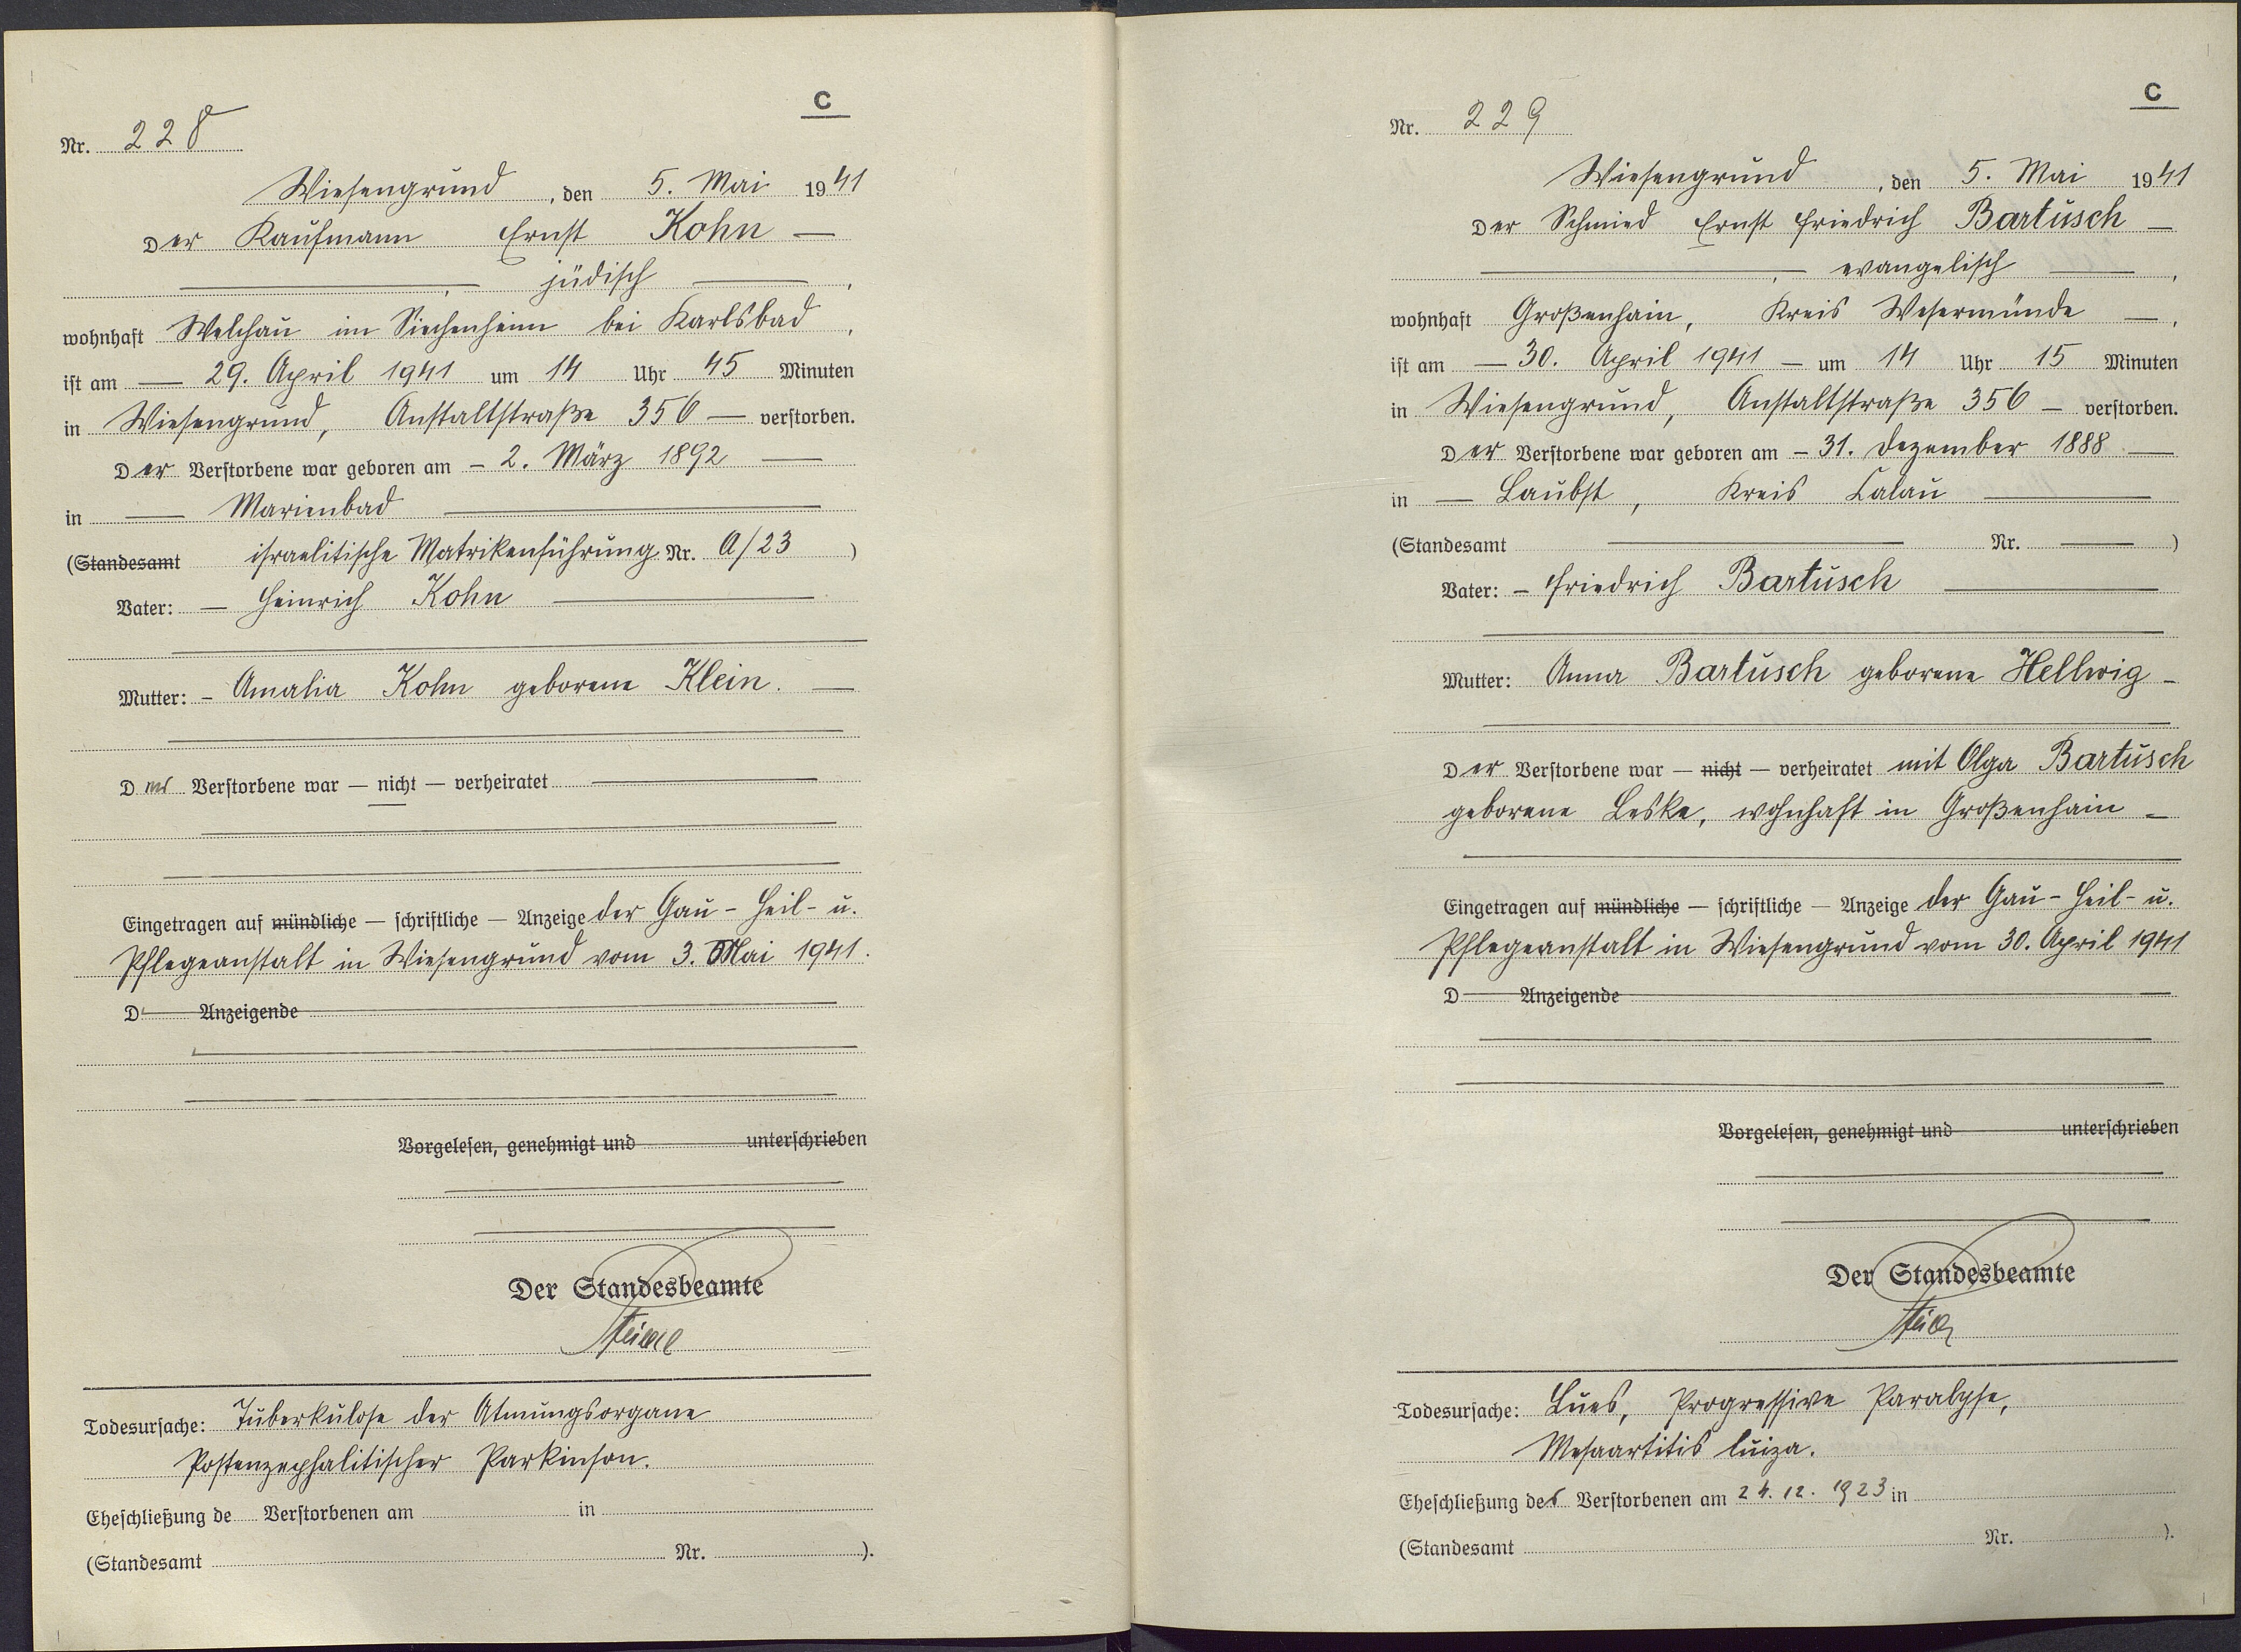 C
Nr. 228
Wiesengrund, den 5. Mai 1941
Der Kaufmann Ernst Kohn —
—, jüdisch —,
wohnhaft Welchau im Siechenheim bei Karlsbad,
ist am — 29. April 1941 um 14 Uhr 45 Minuten
in Wiesengrund, Anstaltstraße 356 — verstorben.
Der Verstorbene war geboren am - 2. März 1892 —
in — Marienbad —
(Standesamt israelitische Matrikenführung Nr. A/23)
Vater: — Heinrich Kohn —
Mutter: - Amalia Kohn geborene Klein. —
Der Verstorbene war — nicht — verheiratet —
Eingetragen auf mündliche — schriftliche — Anzeige der Gau-Heil- u.
Pflegeanstalt in Wiesengrund vom 3. Mai 1941.
D Anzeigende
Vorgelesen, genehmigt und unterschrieben
Der Standesbeamte
Todesursache: Tuberkulose der Atmungsorgane
Postenzephalitischer Parkinson.
Eheschließung de Verstorbenen am in
(Standesamt Nr. ).
C
Nr. 229
Wiesengrund, den 5. Mai 1941
Der Schmied Ernst Friedrich Bartusch —
—, evangelisch —,
wohnhaft Großenhain, Kreis Wesermünde —,
ist am — 30. April 1941 — um 14 Uhr 15 Minuten
in Wiesengrund, Anstaltstraße 356 — verstorben.
Der Verstorbene war geboren am - 31. Dezember 1888 —
in — Laubst, Kreis Calau —
(Standesamt — Nr. —)
Vater: - Friedrich Bartusch —
Mutter: Anna Bartusch geborene Hellwig -
Der Verstorbene war — nicht — verheiratet mit Olga Bartusch
geborene Leske, wohnhaft in Großenhain -
Eingetragen auf mündliche — schriftliche — Anzeige der Gau-Heil- u.
Pflegeanstalt in Wiesengrund vom 30. April 1941
D Anzeigende
Vorgelesen, genehmigt und unterschrieben
Der Standesbeamte
Todesursache: Lues, Progressive Paralyse,
Mesaartitis luiza.
Eheschließung des Verstorbenen am 24. 12. 1923 in
(Standesamt Nr. ).